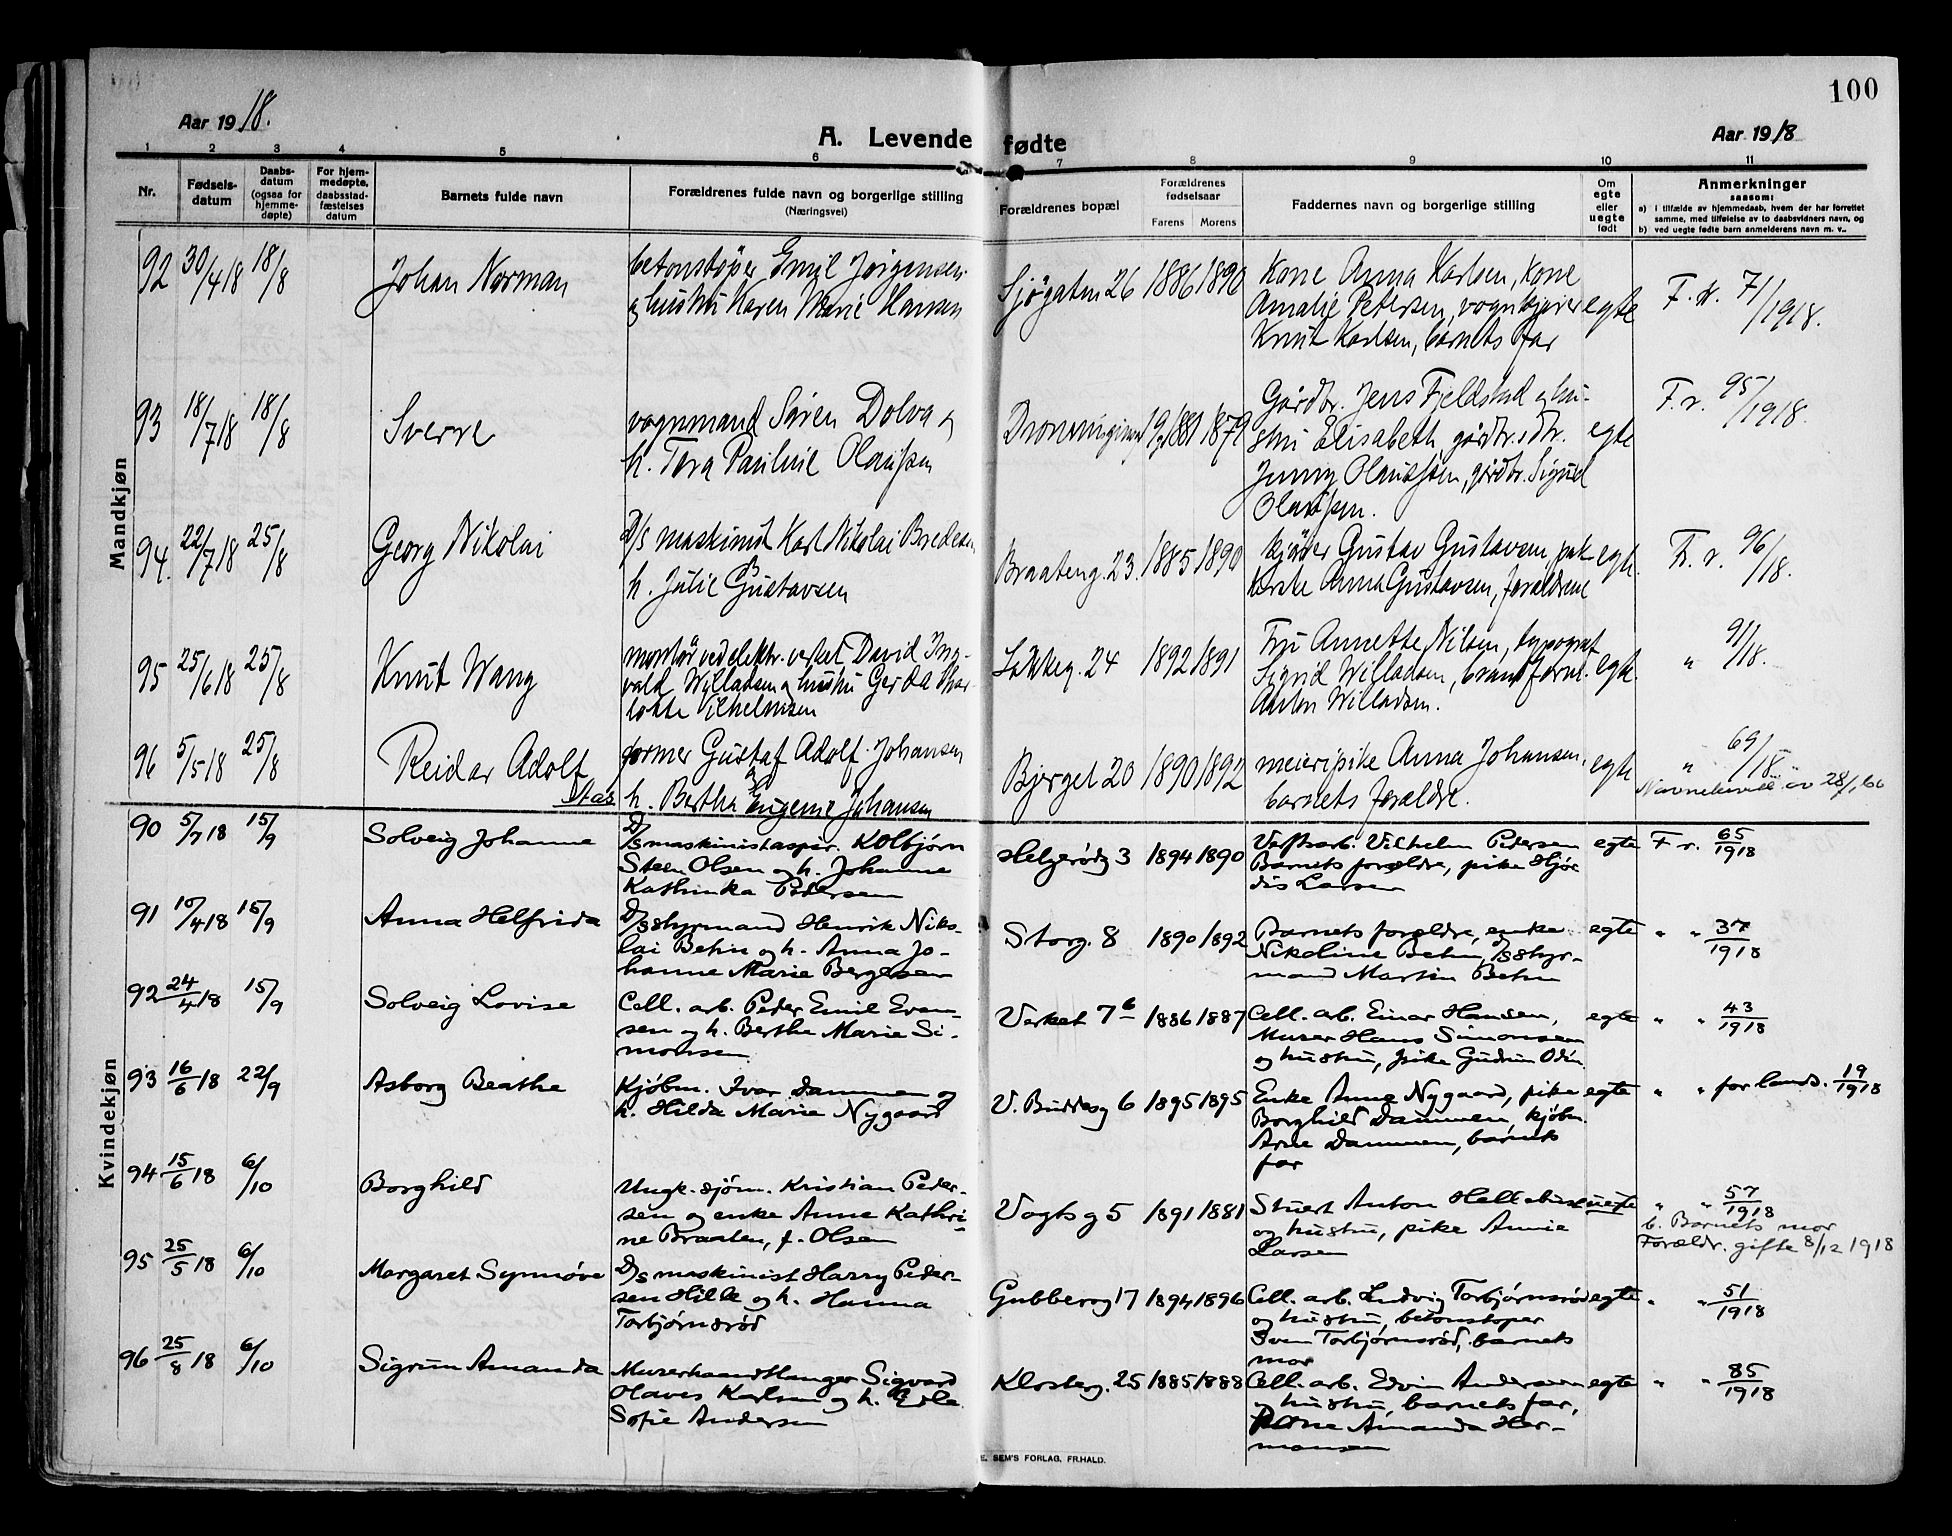 100
Aar 1918.
A. Levende fødte
Aar 1918
1 2 3 4 5 6 7 8 9 10 11
Nr.
Fødsels-
datum
Daabs-
datum
(ogsaa for
hjemme-
døpte)
For hjem-
medøpte,
daabsstad-
fæstelses
datum
Barnets fulde navn
Forældrenes fulde navn og borgerlige stilling
(Næringsvei)
Forældrenes bopæl
Forældrenes
fødselsaar
Farens Morens
Faddernes navn og borgerlige stilling
Om
egte
eller
uegte
født
Anmerkninger
saasom:
a) i tilfælde av hjemmedaab, hvem der har forrettet
samme, med tilføielse av to daabsvidners navn, og
b) ved uegte fødte barn anmelderens navn m. v..
Mandkjøn
92 30/4 18 18/8 Johan Norman
betonstøper Emil Jørgensen
og hustru Karen Marie Hansen
Sjøgaten 26 1886 1890
Kone Anna Karlsen, kone
Amalie Petersen, vognkjører
Knut Karlsen, barnets far
egte F. r. 71/1918.
93 18/7 18 18/8 Sverre
vognmand Søren Dolva og
h. Tora Pauline Olaussen
1881 1879
Gårdbr. Jens Fjeldstad og hu-
stru Elisabeth, gårdbr.s dtr.
Jenny Olaussen, gårdbr. Sigurd
Olaussen.
egte F. r. 95/1918.
94. 22/7 18 25/8 Georg Nikolai
D/s maskinist Karl Nikolai Bredesen
h. Julie B Gustavsen
Braateng. 23. 1885 1890
kjører Gustav Gustavsen, pike
Anna Gustavsen, forældrene
egte. F. r. 96/18.
95 25/6 18 25/8 Knut Wang
montør ved elektr. verket David Ing-
vald Willadsen og hustru Gerda Char-
lotte Vilhelmsen
Løkkeg. 24 1892 1891
Fru Annette Nilsen, typograf
Sigrid Willadsen, brandform.
Anton Willadsen.
egte. " 91/18.
96 5/5 18 25/8 Reidar Adolf
Stås
former Gustaf Adolf Johansen
h. Bertha Eugenie Johansen
Bjerget 20 1890 1892
meieripike Anna Johansen,
barnets forældre.
egte " 69/18
Navnebevill. av 28/1 66
Kvindekjøn
90 5/7 18 15/9 Solveig Johanne
D/s maskinistaspir. Kolbjørn
Steen Olsen og h. Johanne
Kathinka Pedersen
Helgerødg 3 1894 1890
Verftsarb. Vilhelm Pedersen
Barnets forældre, pike Hjør-
dis Larsen
egte F r. 65/1918
91 15/4 18 15/9 Anna Helfrida
D/s styrmand Henrik Niko-
lai Behn og h. Anna Jo-
hanne Marie Bergesen
Storg. 8 1890 1892
Barnets forældre, enke
Nikoline Behn, D/s styr-
mand Martin Behn
egte " " 37/1918
92 24/4 18 15/9 Solveig Lovise
Cell. arb. Peder Emil Even-
sen og h. Berthe Marie Si-
monsen
Verket 7 b 1886 1887
Cell. arb. Einar Hansen,
Murer Hans Simonsen
og hustru, pike Gudrun Odin
egte " " 43/1918
93 16/6 18 22/9 Asborg Beathe
Kjøbm. Ivar Dammen og
h. Hilda Marie Nygaard
V. Buddesg 6 1895 1895
Enke Anne Nygaard, pike
Borghild Dammen, kjøbm.
Arne Dammen, barnets
far
egte " " for lands. 19/1918
94 15/6 18 6/10 Borghild
Ungk. sjøm. Kristian Peder-
sen og enke Anne Kathri-
ne Braaten, f. Olsen
Vogtsg 5 1891 1881
Stuert Anton
og hustru, pike Annie
Larsen
uegte " " 57/1918
b. Barnets mor
Forældr. gifte 8/12 1918
95 25/5 18 6/10 Margaret Synnøve
D/s maskinist Harry Peder-
sen Hille og h. Hanna
Torbjørnsrød
Gubberog 17 1894 1896
Cell. arb. Ludvig Torbjørnsrød
og hustru, betonstøper
Sven Torbjørnsrød, barnets
mor
egte " " 51/1918
96 25/8 18 6/10 Sigrun Amanda
Murerhaandtlanger Sigvard
Olaves Karlsen og h. Edle
Sofie Andersen
Klosterg. 25 1885 1888
Cell. arb. Edvin Andersen
og hustru, barnets far,
Kone Amanda Her-
mansen
egte " " 85/1918
E. SEM'S FORLAG, FR.HALD.